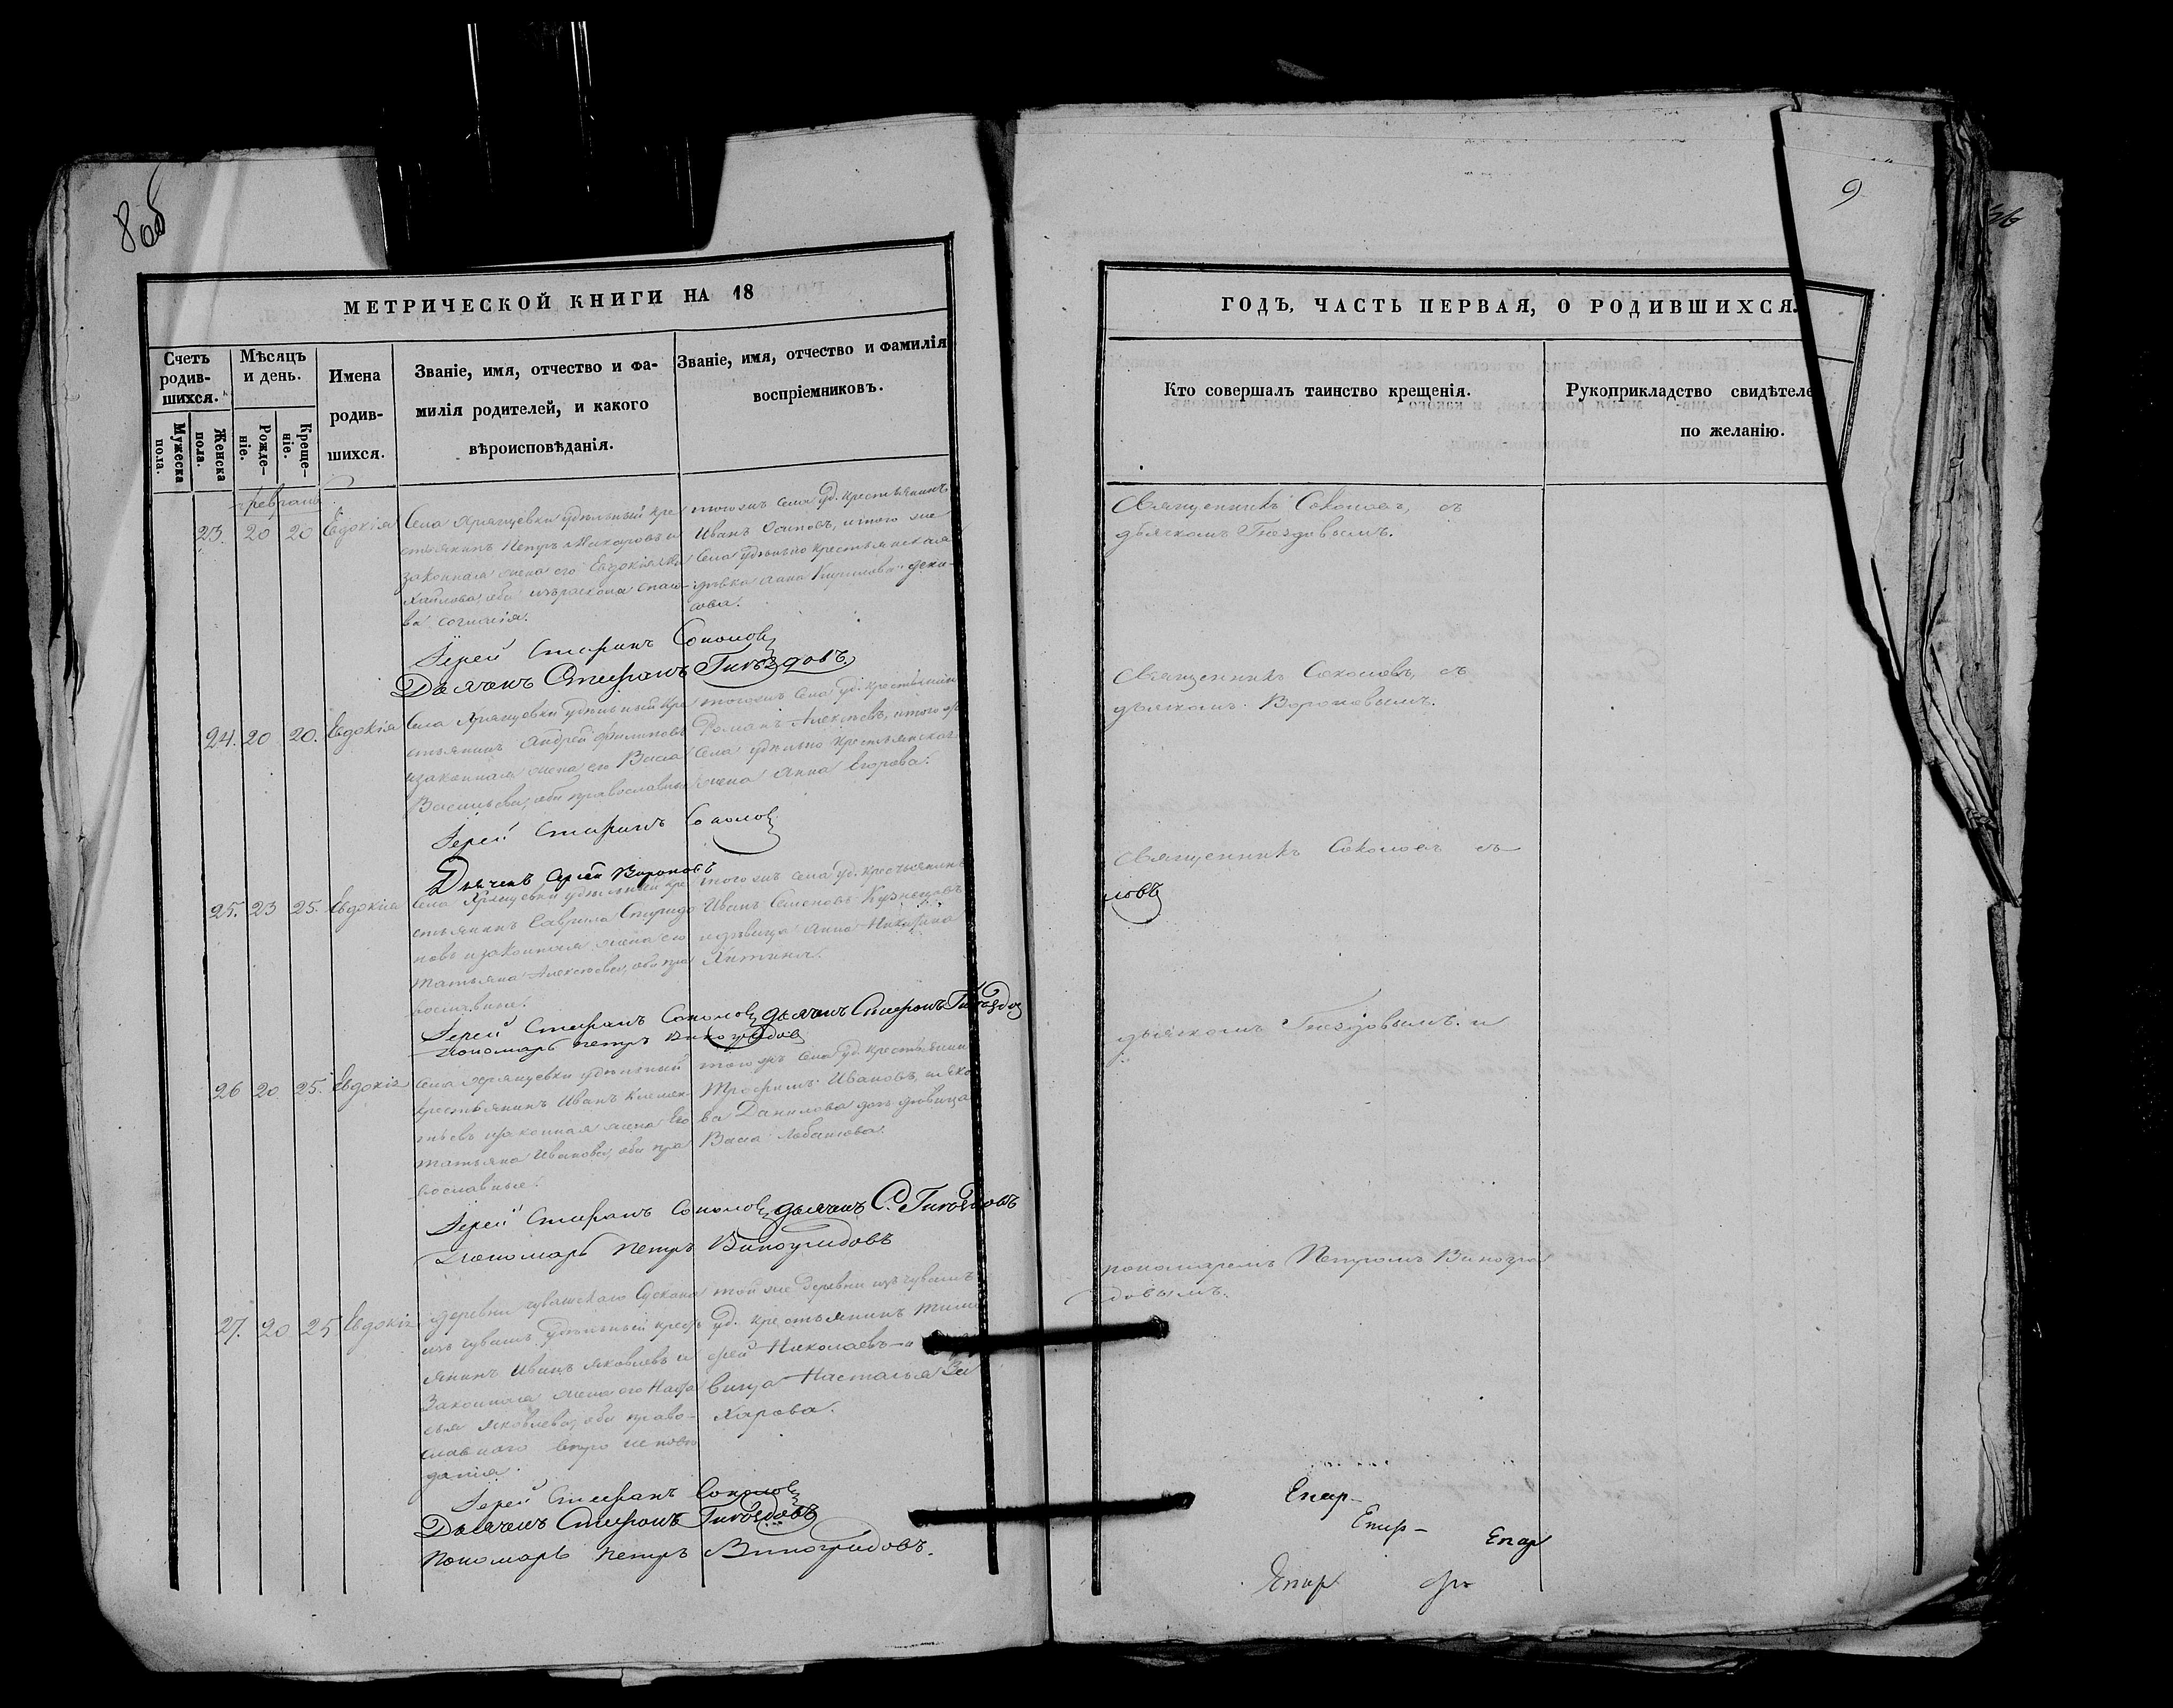 8об
МЕТРИЧЕСКОЙ КНИГИ НА 18
Счетъ родив-шихся.
Мѣсяцъ и день.
Имена родив-шихся.
Званіе, имя, отчество и фа-
милія родителей, и какого
вѣроисповѣданія.
Званіе, имя, отчество и фамилія
воспріемниковъ.
Мужеска пола.
Женска пола.
Рожде-ніе.
Креще-ніе.
февраль
23. 20 20 Евдокія
Села Хрящевки удѣльный кре
стьянинъ Петръ Макаровъ и
законная жена его Евдокія Ми
хайлова, оба изъ раскола спасо-
ва согласія.
тогожъ села уд. крестьянинъ
Иванъ Осиповъ, и того же
села удѣльно крестьянская
дѣвка Анна Кирилова Дени-
сова.
Іерей Стефанъ Соколовъ
Дьячекъ Стефанъ Гнѣздовъ.
24. 20 20. Евдокія
Села Хрящевки удѣльный кре
стьянинъ Андрей Филиповъ
и законная жена его Васса
Васильева, оба православные
тогожъ села уд. крестьянин
Романъ Алексѣевъ, и того ж
села удѣльно крестьянская
жена Анна Егорова.
Іерей Стефанъ Соколовъ
Дьячекъ Сергѣй Вороновъ
25. 23 25. Евдокія
Села Хрящевки удѣльный кре
стьянинъ Гаврила Спиридо
новъ и законная жена его
Татьяна Алексѣева, оба пра
вославные.
тогожъ села уд. крестьянинъ
Иванъ Семеновъ Кузнецовъ
и дѣвица Анна Никитина
Іерей Стефанъ Соколовъ дьячекъ Стефанъ Гнѣздовъ
пономарь Петръ Виноградовъ
26 20 25. Евдокія
Села Хрящевки удѣльный
крестьянинъ Иванъ Клемен-
тьевъ и законная жена его
Татьяна Иванова, оба пра
вославные.
тогожъ села уд. крестьянин
Трофимъ Ивановъ, и Яко
ва Данилова дочь дѣвица
Васса Лобанова.
Іерей Стефанъ Соколовъ дьячекъ С. Гнѣздовъ
пономарь Петръ Виноградовъ
27. 20 25 Евдокія
деревни чувашскаго Сускана
изъ чувашъ удѣльный кресть
янинъ Иванъ Яковлевъ и
законная жена его Наста
сья Яковлева, оба право-
славнаго вѣро исповѣ
данія.
той же деревни изъ чувашъ
уд. крестьянинъ Тимо
фей Николаевъ и
вица Настасья За
харова.
Іерей Стефанъ Соколовъ
Дьячекъ Стефанъ Гнѣздовъ
Пономарь Петръ Виноградовъ.
9
ГОДЪ, ЧАСТЬ ПЕРВАЯ, О РОДИВШИХСЯ.
Кто совершалъ таинство крещенія.
Рукоприкладство свидѣтеле
по желанію.
Священникъ Соколовъ, съ
дьячкомъ Гнездовымъ.
Священникъ Соколовъ, съ
дьячкомъ Вороновымъ.
Священникъ Соколовъ съ
ловъ
дьячкомъ Гнездовымъ. и
пономаремъ Петромъ Виногра
довымъ.
Епар-
Епар-
Епар
Епар